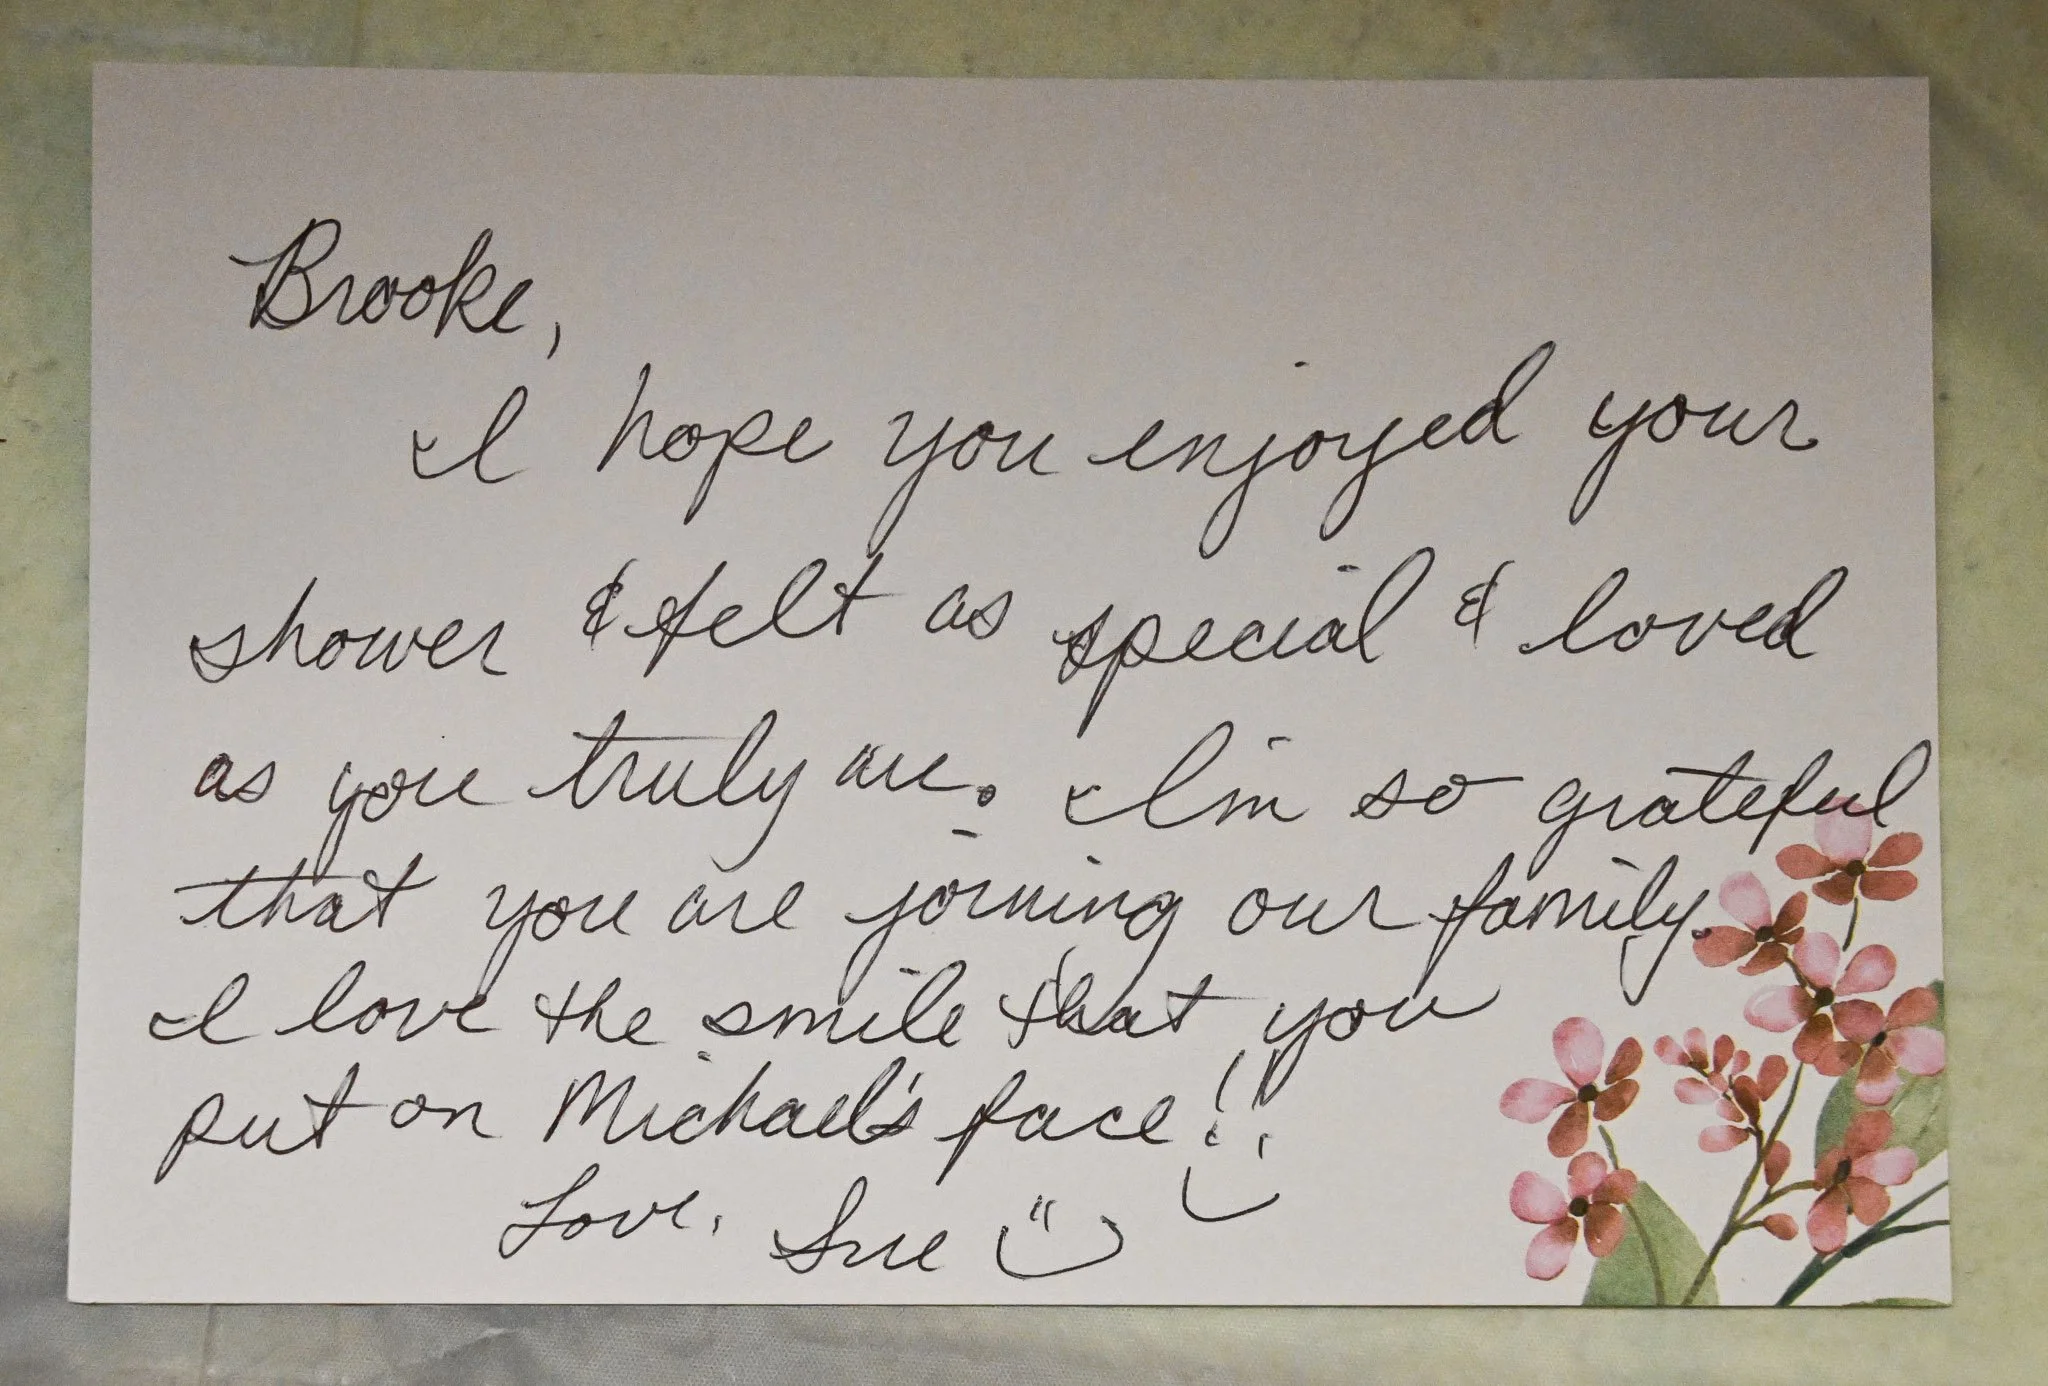 Brooke,
I hope you enjoyed your
shower & felt as special & loved
as you truly are. I'm so grateful
that you are joining our family.
I love the smile that you
put on Michael's face!!
Love, Sue